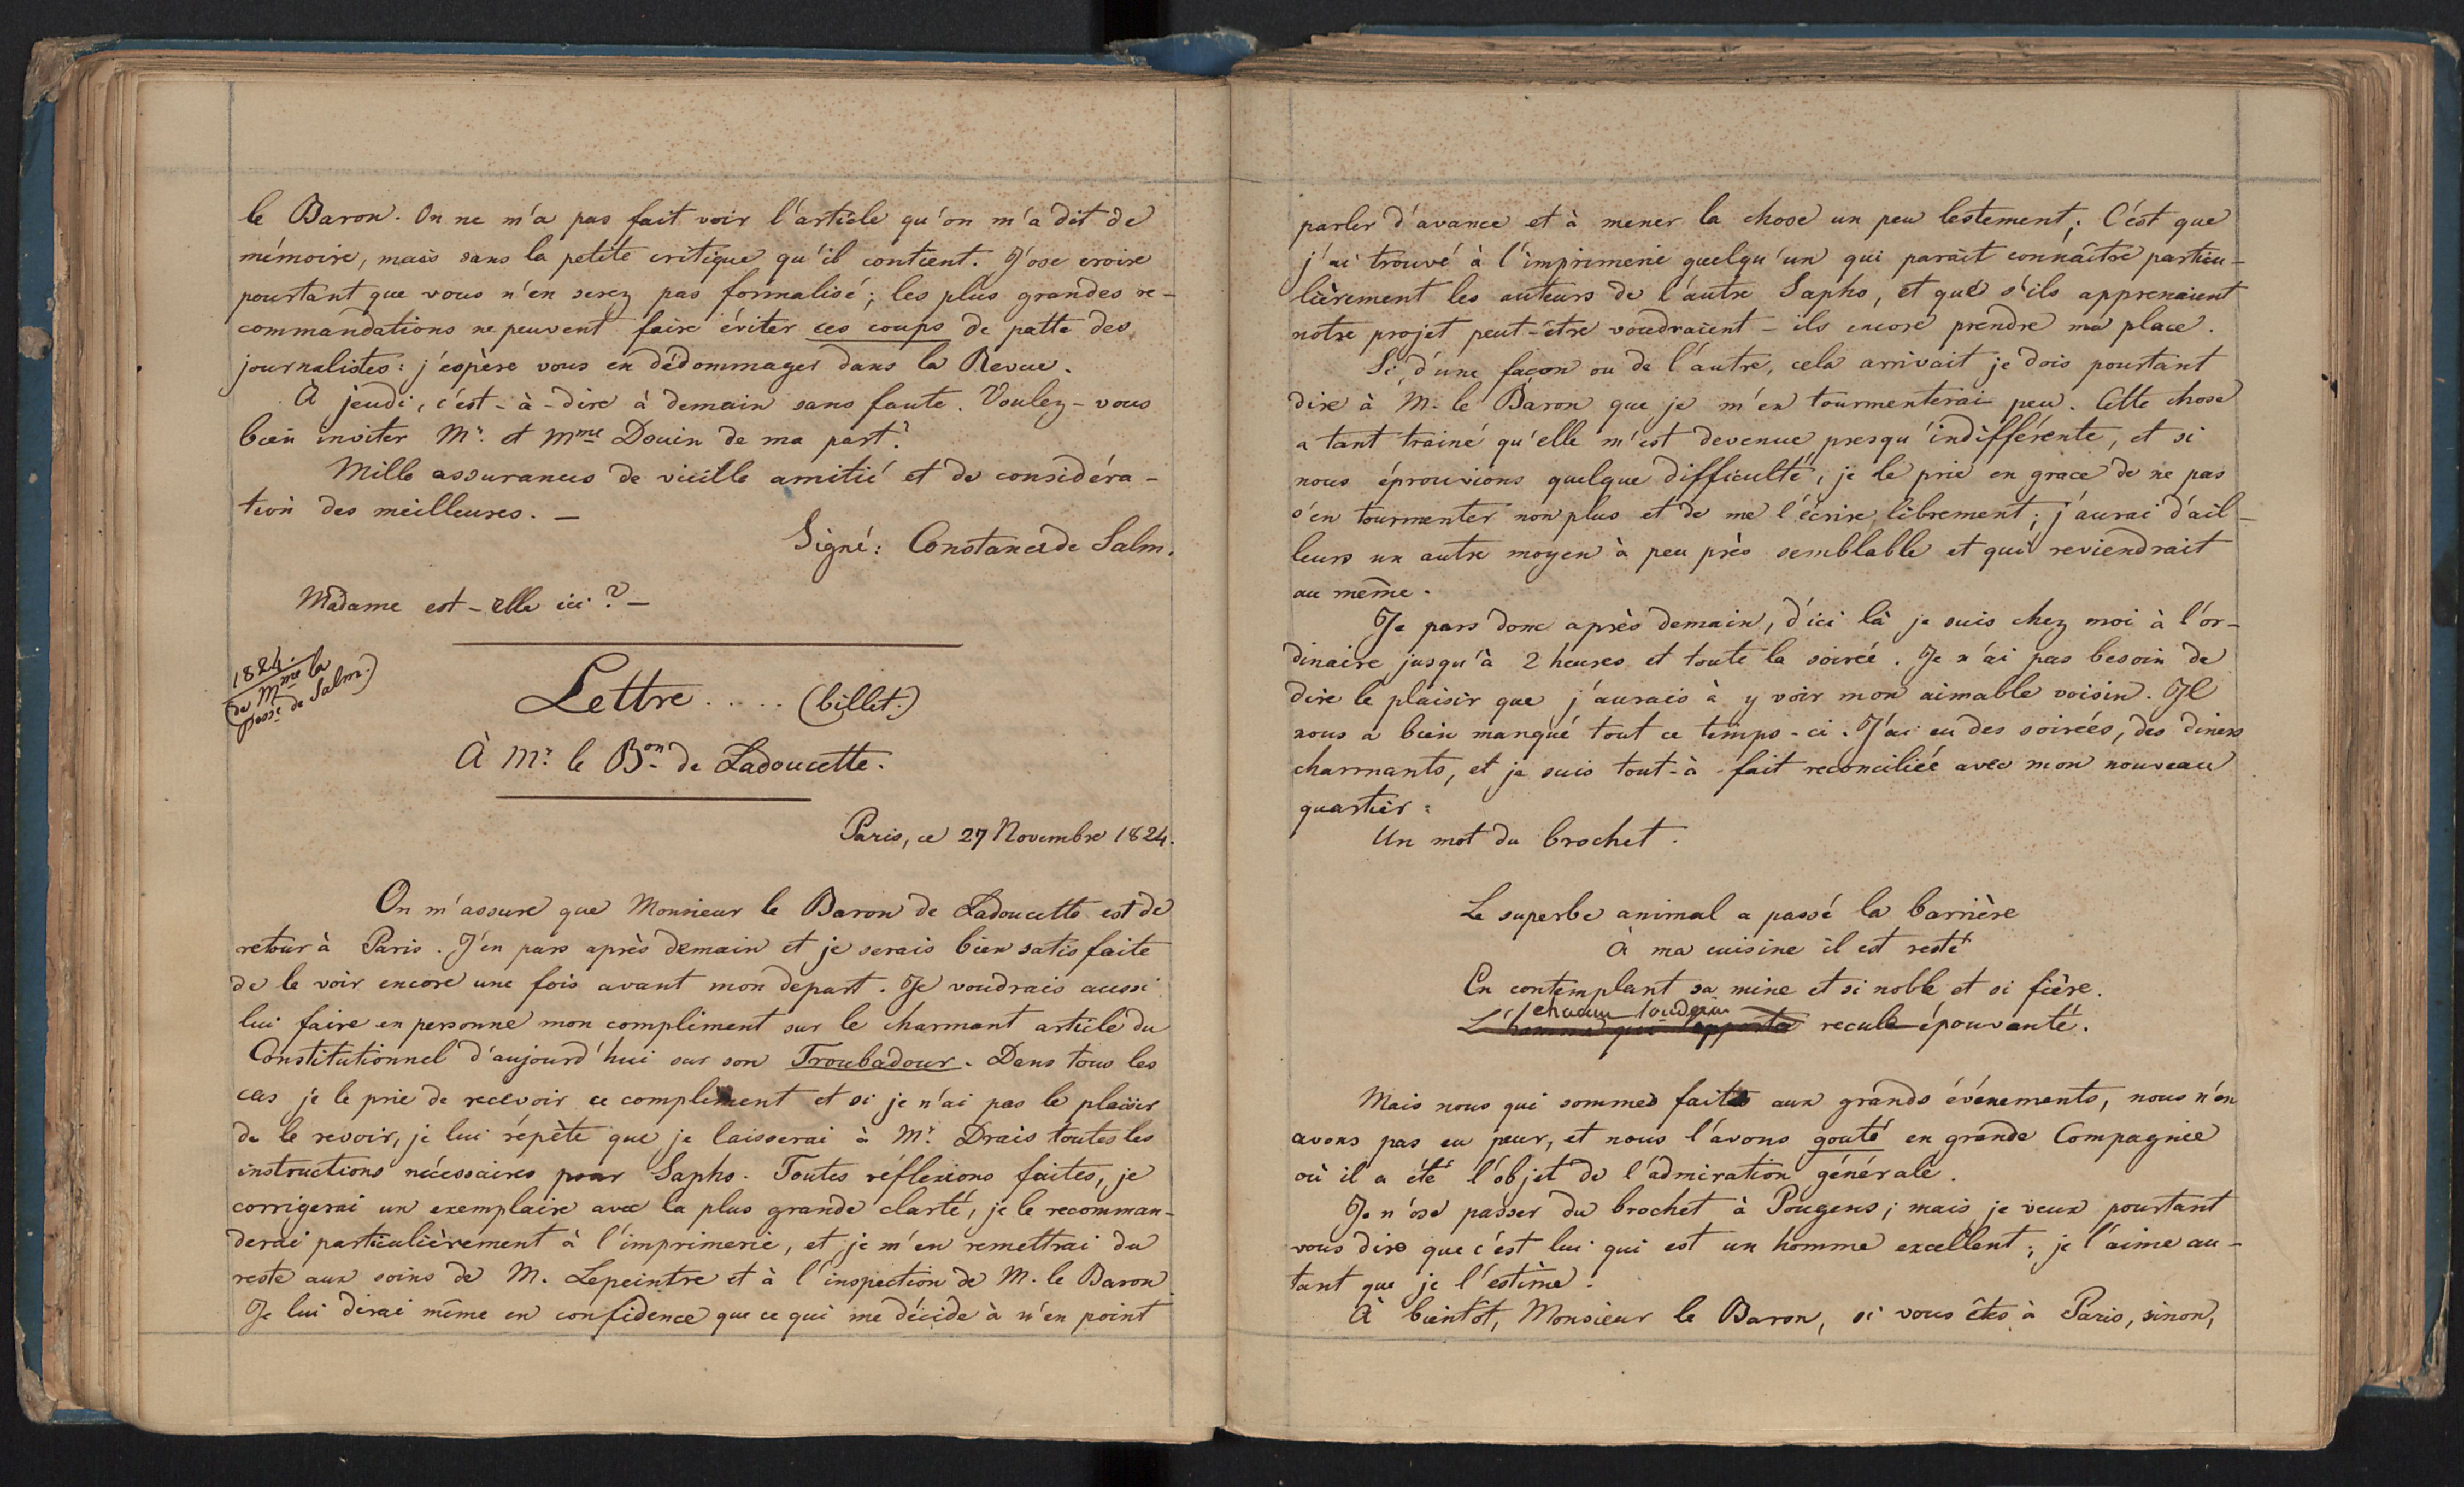 le Baron. On ne m'a pas fait voir l'article qu'on m'a dit de
mémoire, mais sans la petite critique qu'il contient. J'ose croire
pourtant que vous n'en serez pas formalisé; les plus grandes re-
commandations ne peuvent faire éviter ces coups de patte des
journalistes: j'espère vous en dédommager dans la Revue.
À jeudi, c'est-à-dire à demain sans faute. Voulez-vous
bien inviter Mr. et Mme Douin de ma part?
Mille assurances de vieille amitié et de considéra-
tion des meilleures. —
Signé: Constance de Salm.
Madame est-elle ici? —
1824.
(de Mme la
Pesse de Salm.)
Lettre ..... (billet.)
À Mr. le Bon. de Ladoucette.
Paris, ce 27 Novembre 1824.
On m'assure que Monsieur le Baron de Ladoucette est de
retour à Paris. J'en pars après demain et je serais bien satisfaite
de le voir encore une fois avant mon départ. Je voudrais aussi
lui faire en personne mon compliment sur le charmant article du
Constitutionnel d'aujourd'hui sur son Troubadour. Dans tous les
cas je le prie de recevoir ce compliment et si je n'ai pas le plaisir
de le revoir, je lui répète que je laisserai à Mr. Drais toutes les
instructions nécessaires pour Sapho. Toutes réflexions faites, je
corrigerai un exemplaire avec la plus grande clarté, je le recomman-
derai particulièrement à l'imprimerie, et je m'en remettrai du
reste aux soins de M. Lepeintre et à l'inspection de M. le Baron.
Je lui dirai même en confidence que ce qui me décide à n'en point
parler d'avance et à mener la chose un peu lestement; C'est que
j'ai trouvé à l'imprimerie quelqu'un qui parait connaître particu-
lièrement les auteurs de l'autre Sapho, et que s'ils apprenaient
notre projet peut-être voudraient-ils encore prendre ma place.
Si, d'une façon ou de l'autre, cela arrivait je dois pourtant
dire à M. le Baron que je m'en tourmenterai peu. Cette chose
a tant trainé qu'elle m'est devenue presqu'indifférente, et si
nous éprouvions quelque difficulté, je le prie en grace de ne pas
s'en tourmenter non plus et de me l'écrire librement; j'aurai d'ail-
leurs un autre moyen à peu près semblable et qui reviendrait
au même.
Je pars donc après demain, d'ici là je suis chez moi à l'or-
dinaire jusqu'à 2 heures et toute la soirée. Je n'ai pas besoin de
dire le plaisir que j'aurais à y voir mon aimable voisin. Il
nous a bien manqué tout ce temps-ci. J'ai eu des soirées, des diners
charmants, et je suis tout-à-fait réconciliée avec mon nouveau
quartier.
Un mot du brochet.
Le superbe animal a passé la barrière
À ma cuisine il est resté
En contemplant sa mine et si noble et si fière.
chacun soudain
L'homme qui l'apporta recule épouvanté.
Mais nous qui sommes faits aux grands événements, nous n'en
avons pas eu peur, et nous l'avons gouté en grande Compagnie
où il a été l'objet de l'admiration générale.
Je n'ose passer du brochet à Pougens; mais je veux pourtant
vous dire que c'est lui qui est un homme excellent; je l'aime au-
tant que je l'estime.
À bientôt, Monsieur le Baron, si vous êtes à Paris, sinon,